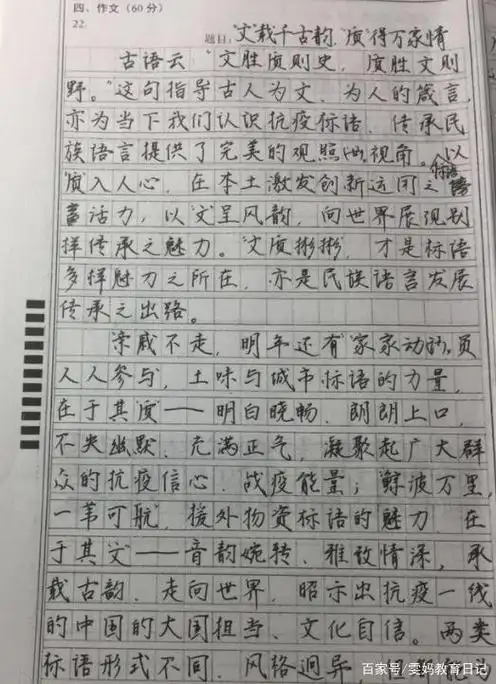 四、作文(60分)
22.
题目: "文"载千古韵,"质"得万家情
古语云"文胜质则史,质胜文则
野。"这句指导古人为文、为人的箴言,
亦为当下我们认识抗疫标语、传承民
族语言提供了完美的观照视角。以
"质"入人心,在本土激发创新运用之标语
活力,以"文"呈风韵,向世界展现别
样传承之魅力。"文质彬彬",才是标语
多样魅力之所在,亦是民族语言发展
传承之出路。
"亲戚不走,明年还有""家家动员,
人人参与",土味与城市标语的力量,
在于其"质"——明白晓畅、朗朗上口,
不失幽默、充满正气,凝聚起广大群
众的抗疫信心、战疫能量;"鲸波万里,
一苇可航",援外物资标语的魅力,在
于其"文"——音韵婉转、雅致情深,承
载古韵、走向世界,昭示出抗疫一线
的中国的大国担当、文化自信。两类
标语形式不同,风格迥异,
百家号/雯妈教育日记